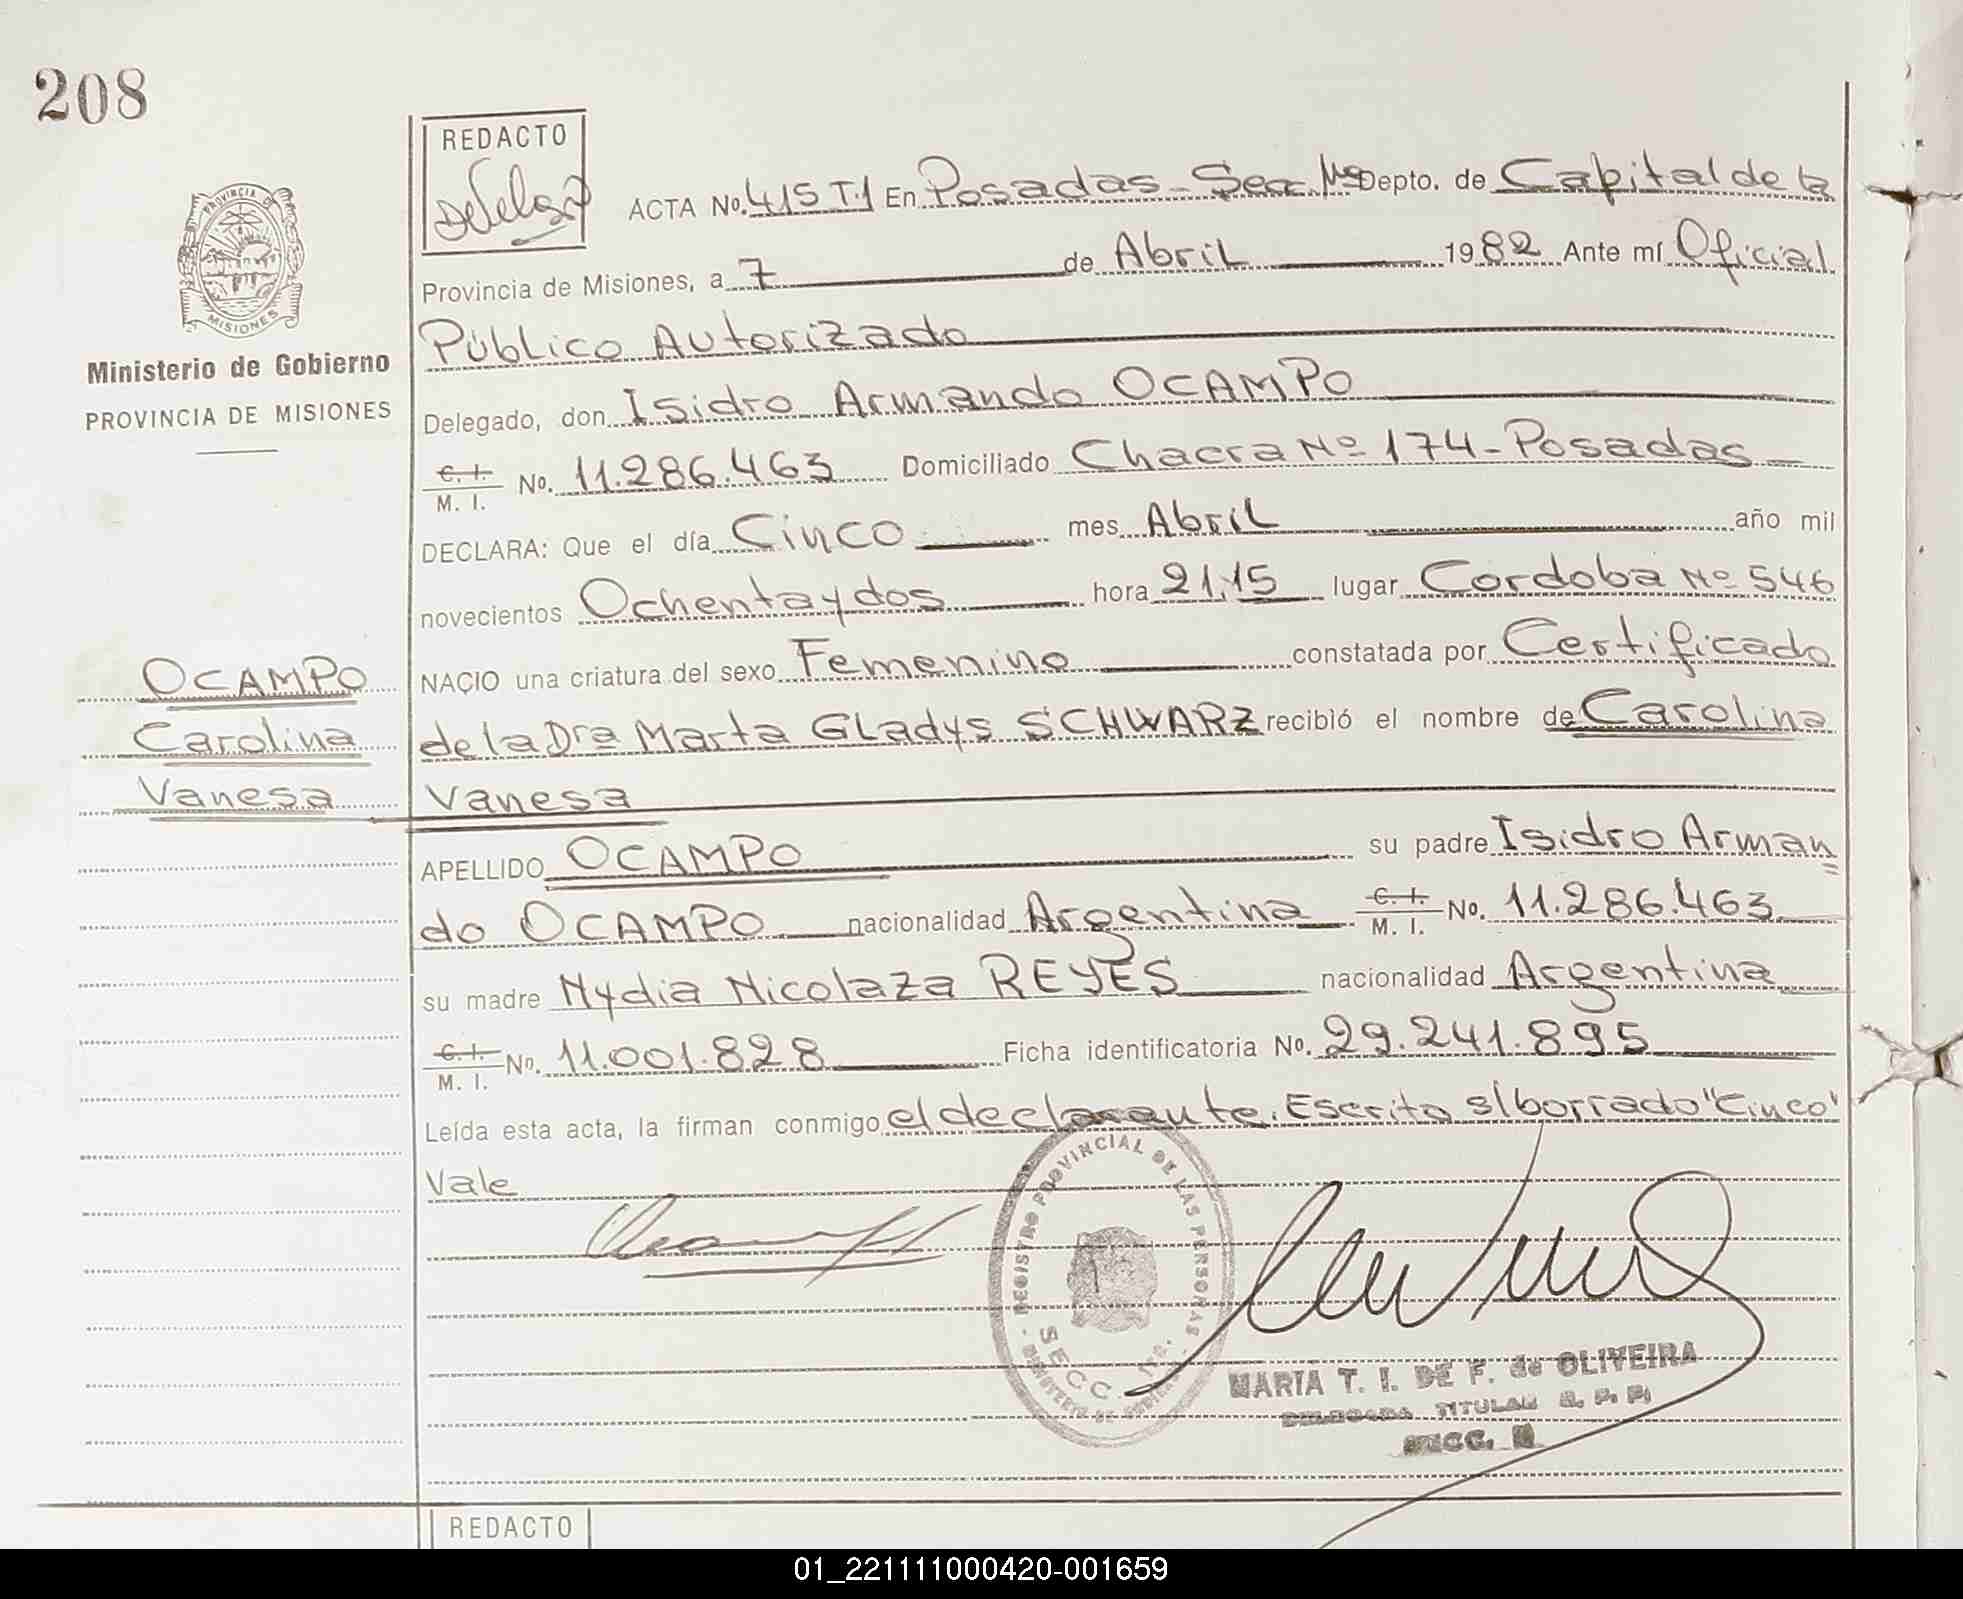 208
REDACTO
PROVINCIA DE
MISIONES
Ministerio de Gobierno
PROVINCIA DE MISIONES
ACTA No. 415 T.1 En Posadas - Secc. Depto. de Capital de la
Provincia de Misiones, a 7 de Abril 1982 Ante mí Oficial
Público Autorizado
Delegado, don Isidro Armando OCAMPO
C. I.
M. I. No. 11.286.463 Domiciliado Chacra Nº 174 - Posadas
DECLARA: Que el día Cinco mes Abril año mil
novecientos Ochenta y dos hora 21,15 lugar Cordoba Nº 546
NACIO una criatura del sexo Femenino constatada por Certificado
de la Dra Marta Gladys SCHWARZ recibió el nombre de Carolina
Vanesa
OCAMPO
Carolina
Vanesa
APELLIDO OCAMPO su padre Isidro Arman
do OCAMPO nacionalidad Argentina C. I. M. I. No. 11.286.463
su madre Nydia Nicolaza REYES nacionalidad Argentina
C. I.
M. I. No. 11.001.828 Ficha identificatoria No. 29.241.895
Leída esta acta, la firman conmigo el declarante. Escrito s/borrado "Cinco"
Vale
REGISTRO PROVINCIAL DE LAS PERSONAS
SECC.
MARIA T. I. DE F. de OLIVEIRA
DELEGADA TITULAR R. P. P.
SECC.
REDACTO
01_221111000420-001659